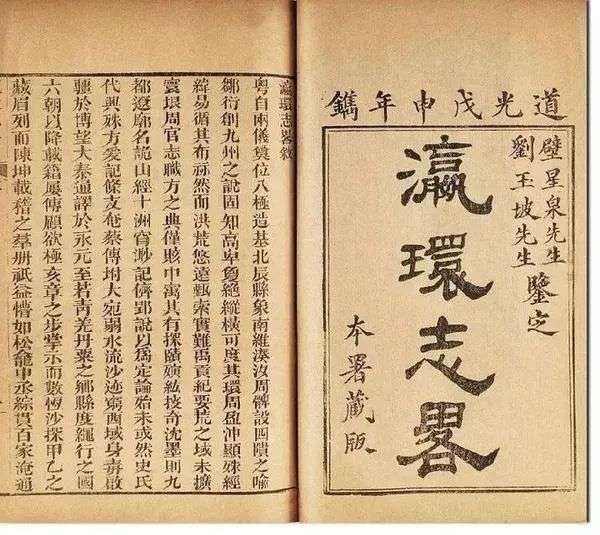 道光戊申年鐫
壁星泉先生
劉玉坡先生
鑒定
瀛環志畧
本署藏版
瀛環志畧敘
粵自兩儀奠位八極造基北辰縣象南維湊沒周髀設四隤之喻
鄒衍創九州之說固知高卑夐絕縱橫可度其環周盈沖顯殊經
緯易循其布祢然而洪荒悠遠甄索實難禹貢紀要荒之域未擴
寰垠周官志職方之典僅賅中寓其有探賾紘技奇沈墨則九
都遼廓名詭山經十洲渺記儕郢說以為定論始未或然史氏
代興殊方爰記條支奄蔡傳坿大宛弱水流沙迹窮西域身毒啟
疆於博望大秦通譯於永元至若青羌丹粟之鄉縣度繩行之國
六朝以降載籍屢傳顧欲極亥章之步掌示而數恆沙探甲乙之
藏眉列而陳坤載稽之羣册祇益懵如松龕中丞綜貫百家淹通